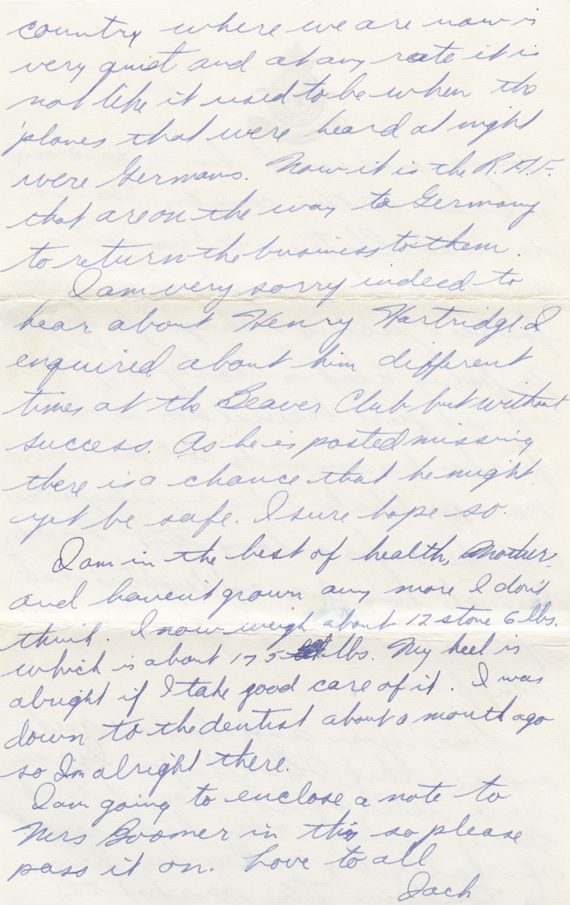 country where we are now is
very quiet and at any rate it is
not like it used to be when the
'planes that were heard at night
were Germans. Now it is the R.A.F.
that are on the way to Germany
to return the business to them.
I am very sorry indeed to
hear about Henry Hartridge. I
enquired about him different
times at the Beaver Club but without
success. As he is posted missing
there is a chance that he might
yet be safe. I sure hope so.
I am in the best of health, Mother
and haven't grown any more I don't
think. I now weigh about 12 stone 6 lbs.
which is about 175 lbs. My heel is
alright if I take good care of it. I was
down to the dentist about a month ago
so I'm alright there.
I am going to enclose a note to
Mrs Boomer in this so please
pass it on. Love to all
Jack